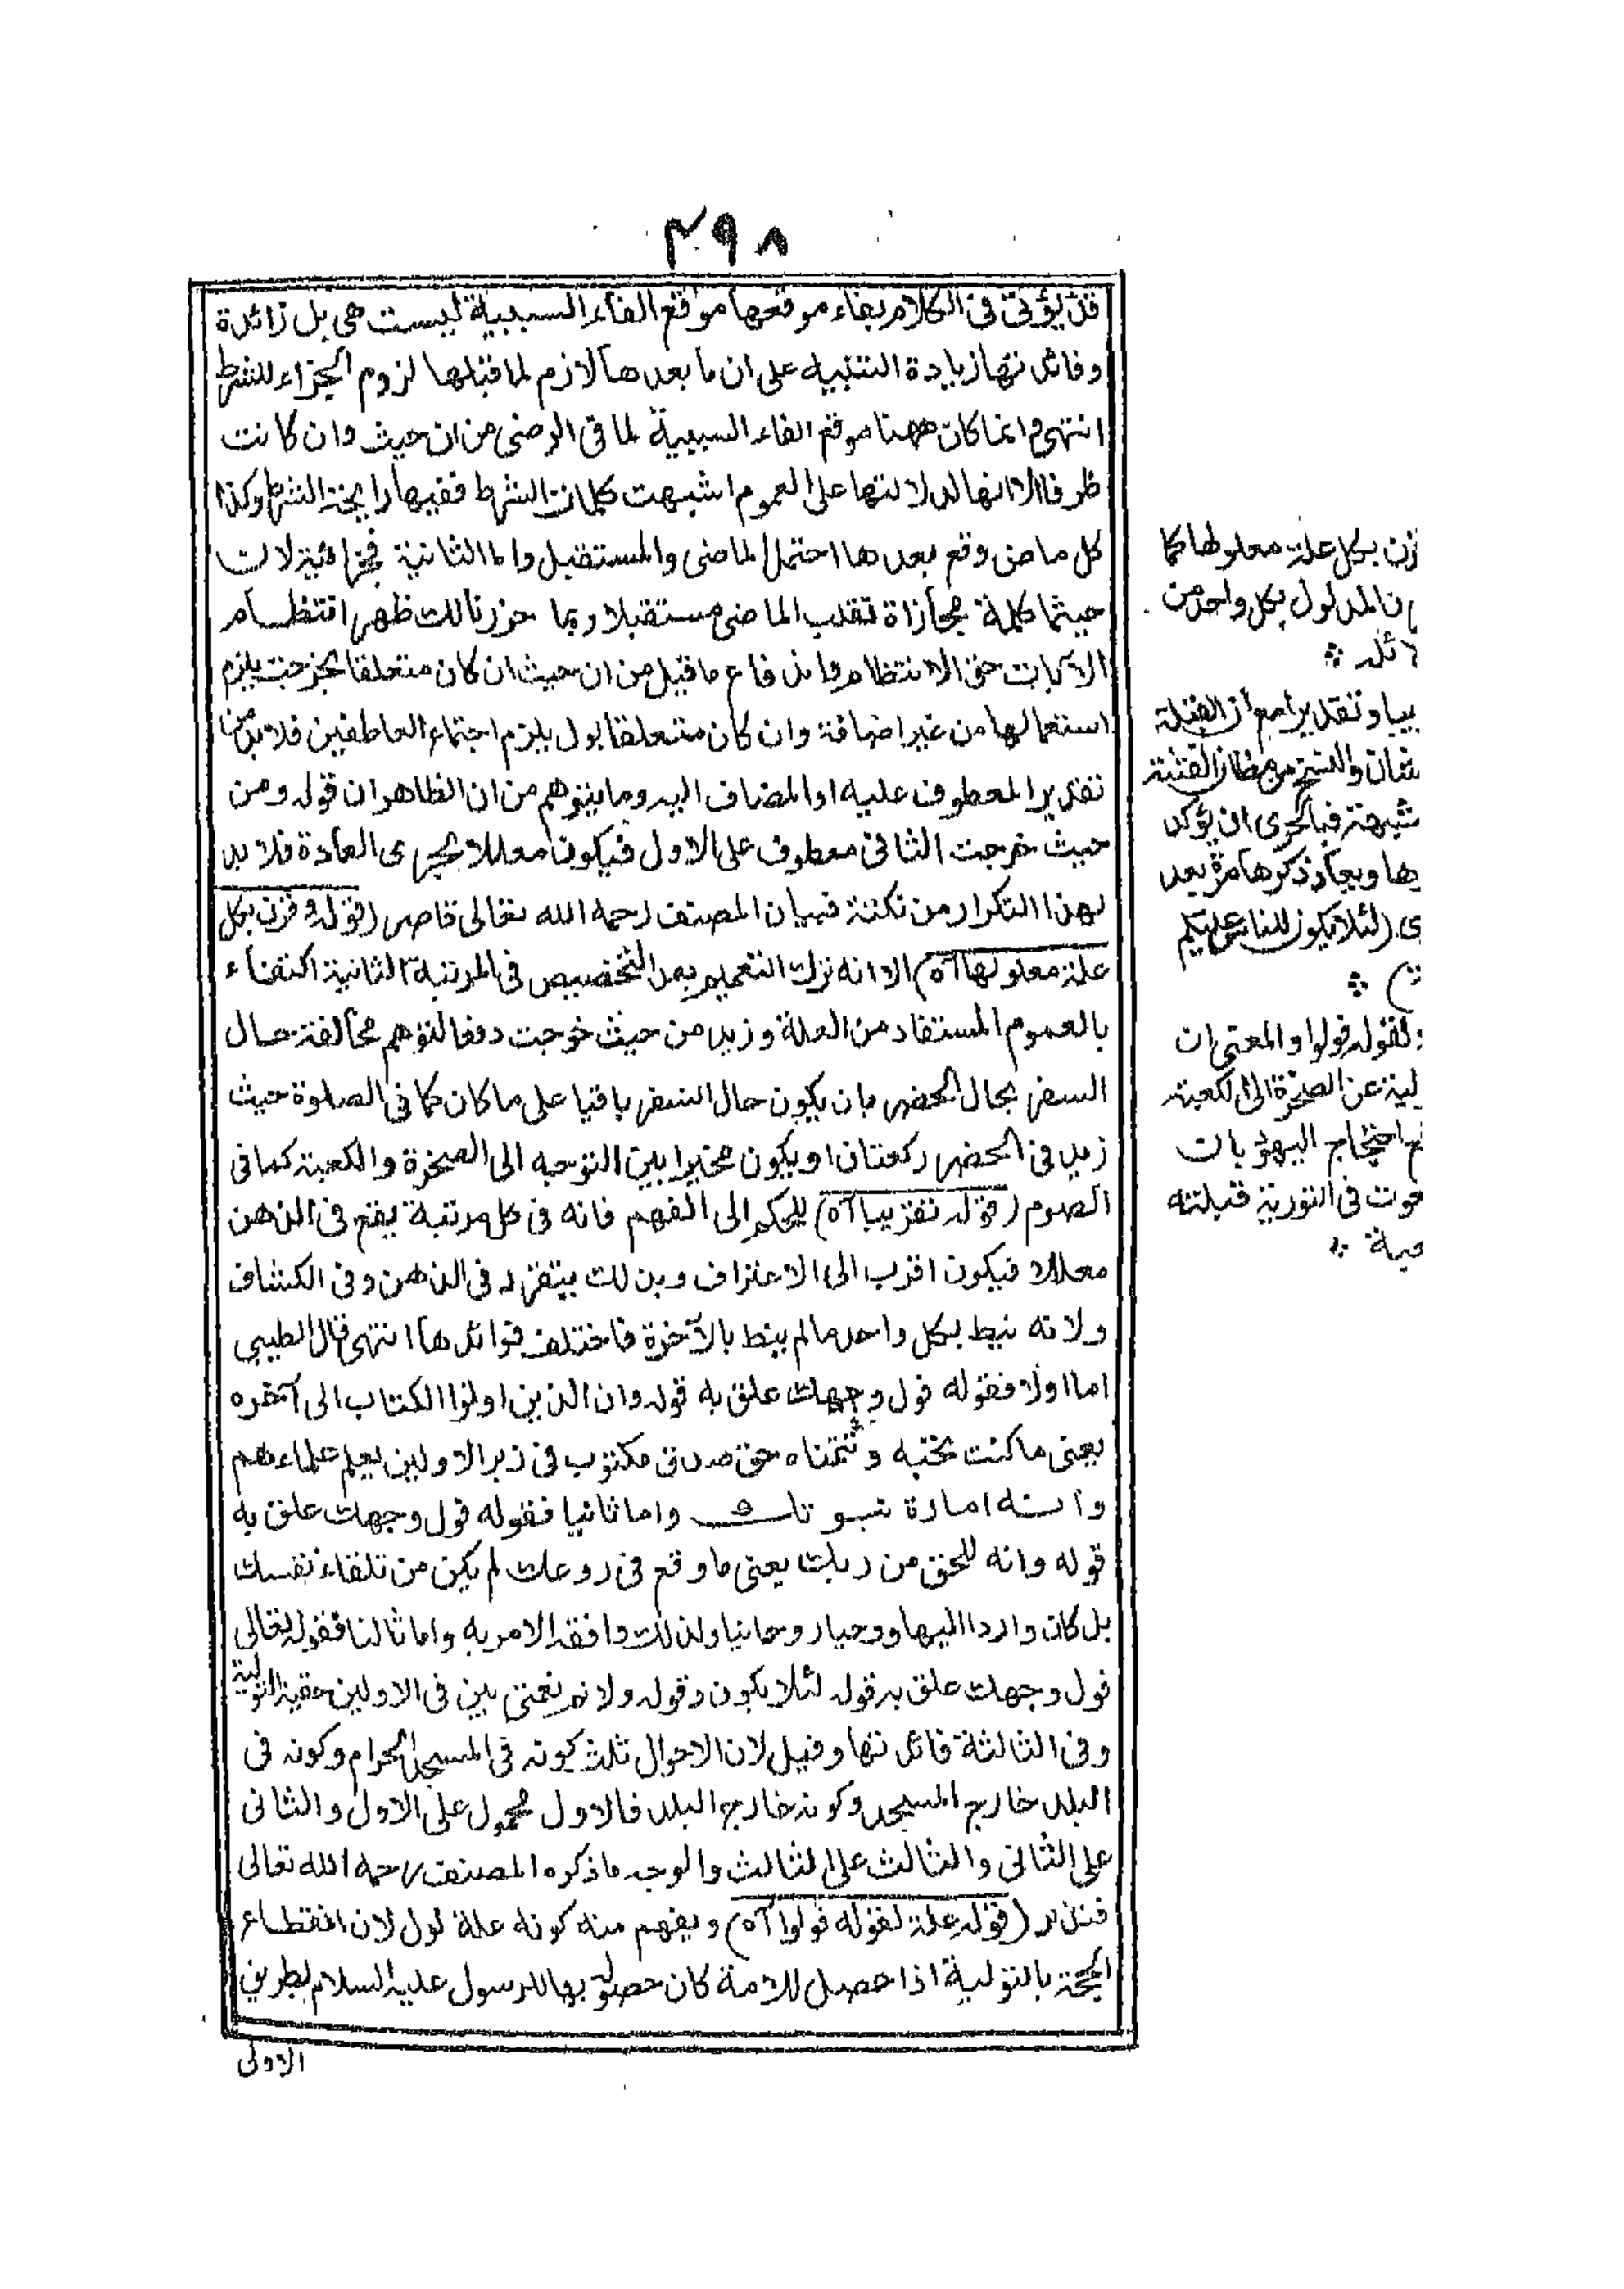 ٤٩٨
قد يؤتى فى الكلام بفاء موقعها موقع الفاء السببية ليست هى بل زائدة
وفائدتها زيادة التنبيه على ان ما بعدها لازم لما قبلها لزوم الجزاء للشرط
انتهى وانما كان ههنا موقع الفاء السببية لما فى الرضى من ان حيث وان كانت
ظرفا الا انها لدلالتها على العموم اشبهت كلمات الشرط ففيها رايحة الشرط وكذا
كل ماض وقع بعدها احتمل الماضى والمستقبل واما الثانية فجزائية لان
حيثما كلمة مجازاة تقلب الماضى مستقبلا وبما حررنا لك ظهر انتظام
الآيات حق الانتظام واندفاع ما قيل من ان حيث ان كان متعلقا بخرجت يلزم
استعمالها من غير اضافة وان كان متعلقا بول يلزم اجتماع العاطفين فلا بد من
تقدير المعطوف عليه او المضاف اليه وما يتوهم من ان الظاهر ان قوله ومن
حيث خرجت الثانى معطوف على الاول فيكون معللا بجرى العادة فلا بد
لهذا التكرار من نكتة فبيان المصنف رحمه الله تعالى قاصر (قوله وقرن بكل
علة معلولها آه) الا انه ترك التعميم بعد التخصيص فى المرتبة الثانية اكتفاء
بالعموم المستفاد من العلة وزيد من حيث خرجت دفعا لتوهم مخالفة حال
السفر بحال الحضر بان يكون حال السفر باقيا على ما كان كما فى الصلوة حيث
زيد فى الحضر ركعتان او يكون مخيرا بين التوجه الى الصخرة والكعبة كما فى
الصوم (قوله تقريبا آه) للحكم الى الفهم فانه فى كل مرتبة يقع فى الذهن
معللا فيكون اقرب الى الاعتراف وبذلك يتقرر فى الذهن وفى الكشاف
ولانه نيط بكل واحد ما لم ينط بالآخرة فاختلف فوائدها انتهى قال الطيبى
اما اولا فقوله فول وجهك علق به قوله وان الذين اوتوا الكتاب الى آخره
يعنى ما كنت تحبه وتتمناه حق صدق مكتوب فى زبر الاولين يعلم علماءهم
وانه امارة نبوتك واما ثانيا فقوله فول وجهك علق به
قوله وانه للحق من ربك يعنى ما وقع فى روعك لم يكن من تلقاء نفسك
بل كان واردا الهيا ووحيا روحانيا ولذلك وافقه الامر به واما ثالثا فقوله تعالى
فول وجهك علق به قوله لئلا يكون وقوله ولاتم نعمتى بين فى الاولين حقية التولية
وفى الثالثة فائدتها وقيل لان الاحوال ثلث كونه فى المسجد الحرام وكونه فى
البلد خارج المسجد وكونه خارج البلد فالاول محمول على الاول والثانى
على الثانى والثالث على الثالث والوجه ما ذكره المصنف رحمه الله تعالى
فتدبر (قوله علة لقوله فولوا آه) ويفهم منه كونه علة لول لان انقطاع
الحجة بالتولية اذا حصل للامة كان حصوله بها للرسول عليه السلام بطريق
الاولى
رن بكل علة معلولها كما
ن المدلول بكل واحد من
لائله
يبا وتقديرا مع ان القبلة
شان والنسخ من مظان الفتنة
شبهة فبالحرى ان يؤكد
ها ويعاد ذكرها مرة بعد
ى (لئلا يكون للناس عليكم
لقوله فولوا والمعنى ان
لية عن الصخرة الى الكعبة
ع احتجاج اليهود بان
عوت فى التورية قبلته
عبة